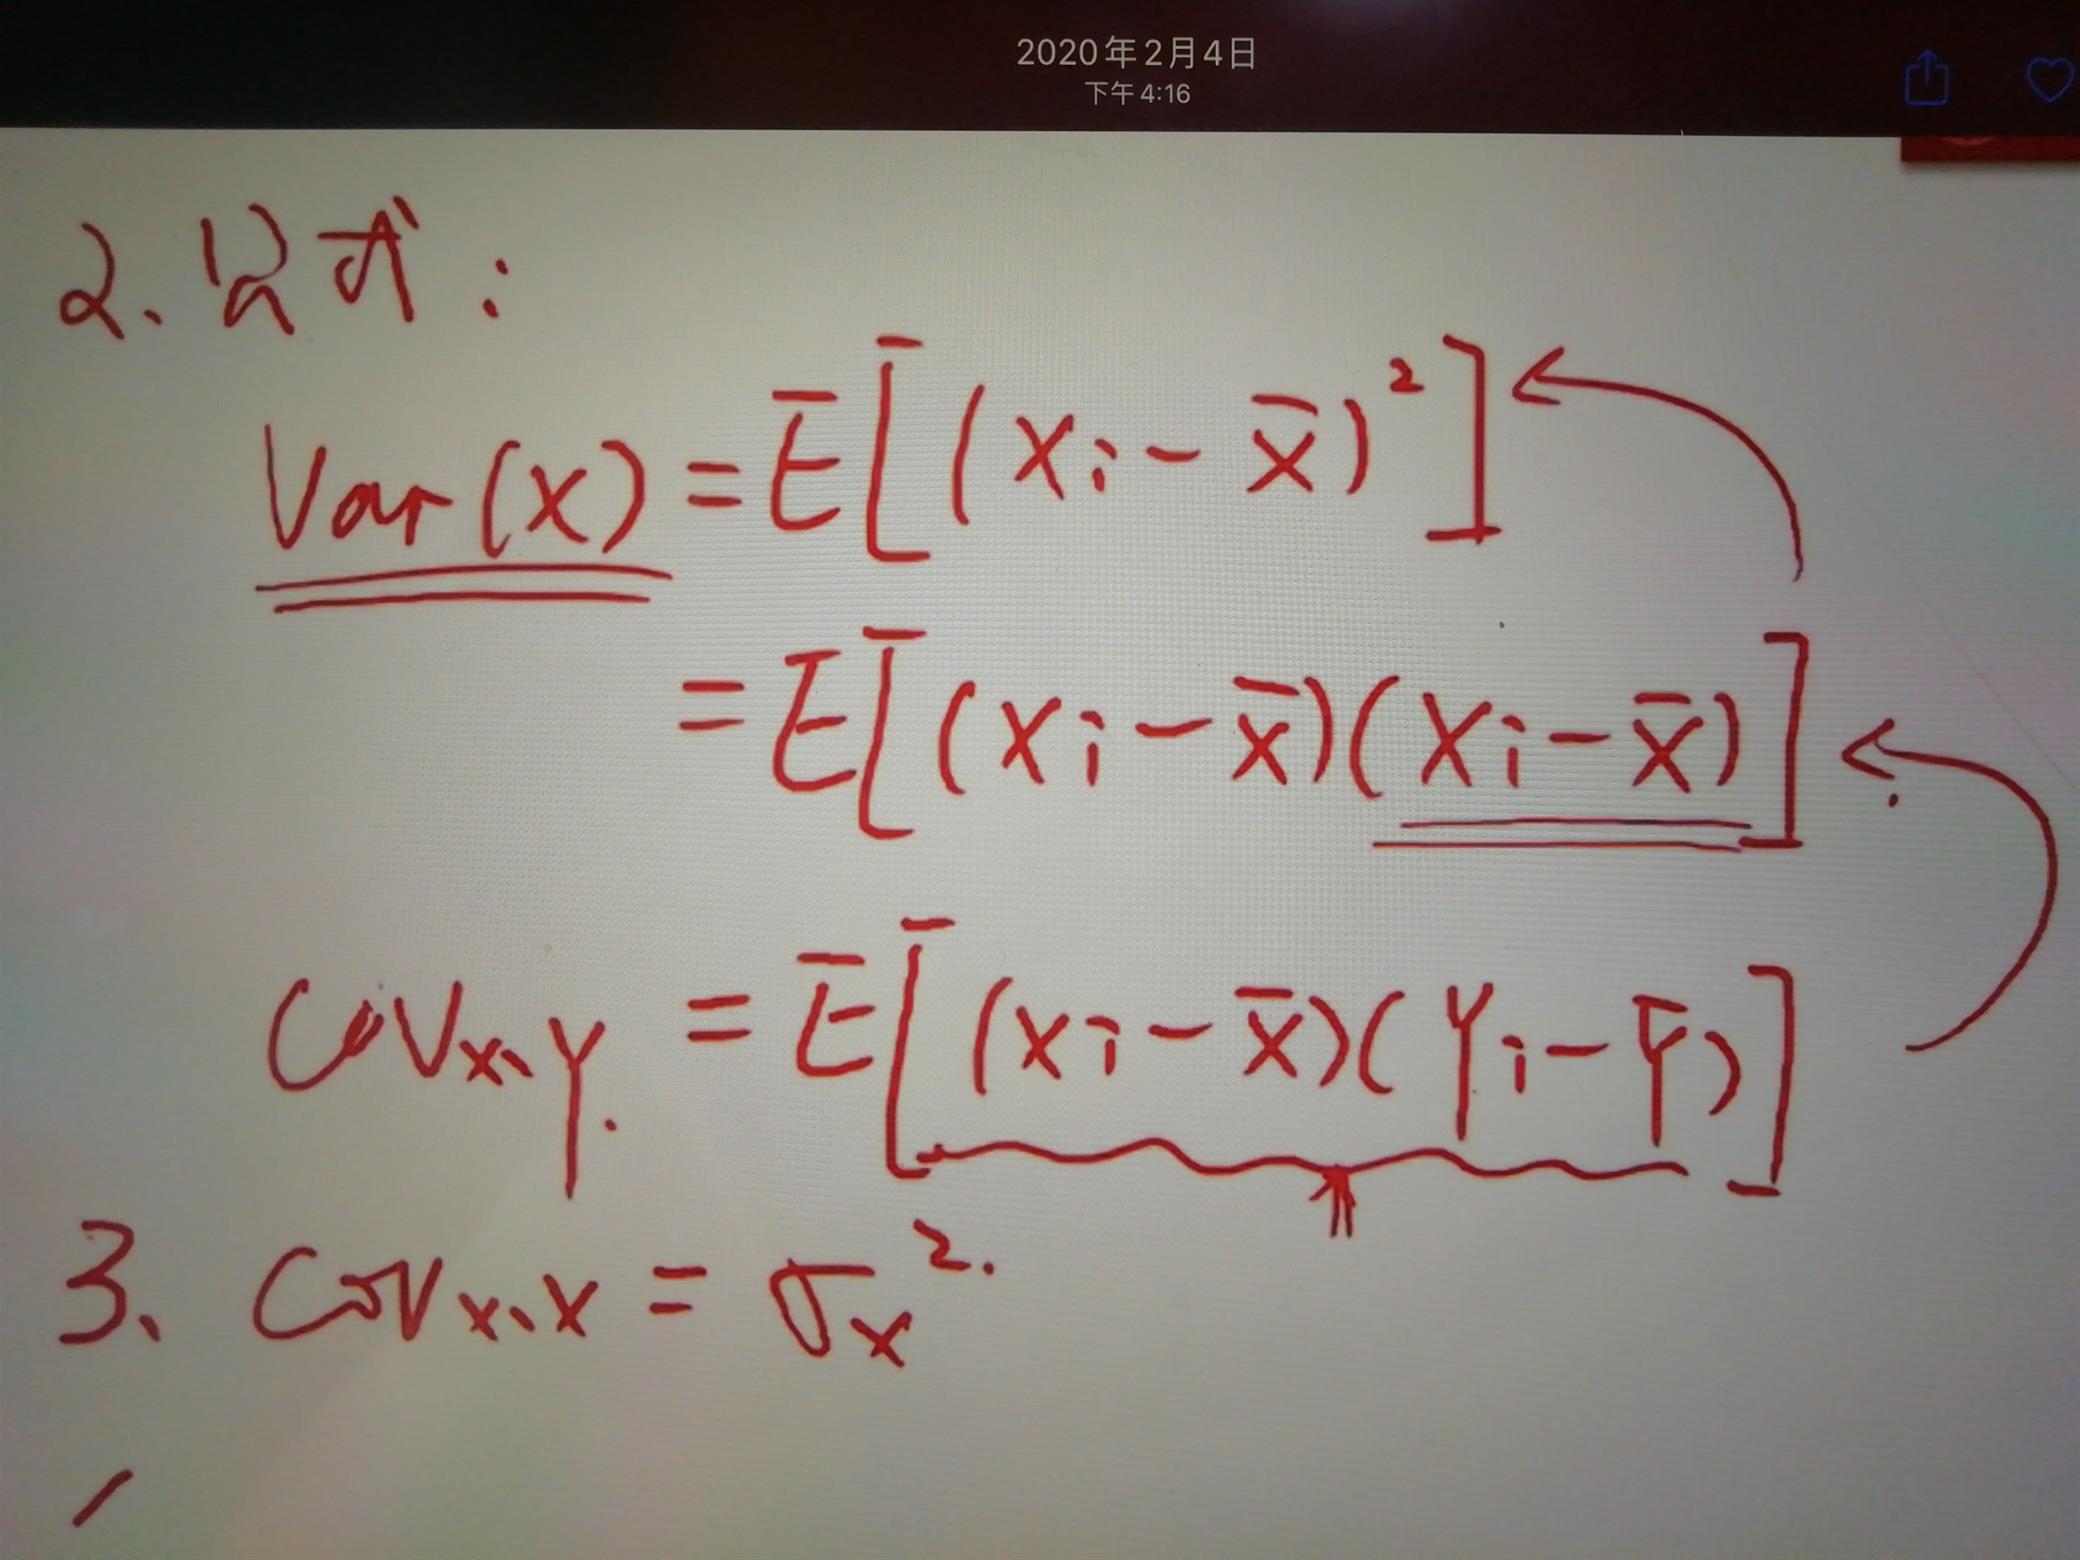 2020年2月4日
下午4:16
2、公式：
Var(x) = E[(xi - x̄)²]
= E[(xi - x̄)(xi - x̄)]
Cov x、y = E[(xi - x̄)(Yi - Ȳ)]
3、Cov x、x = σx².